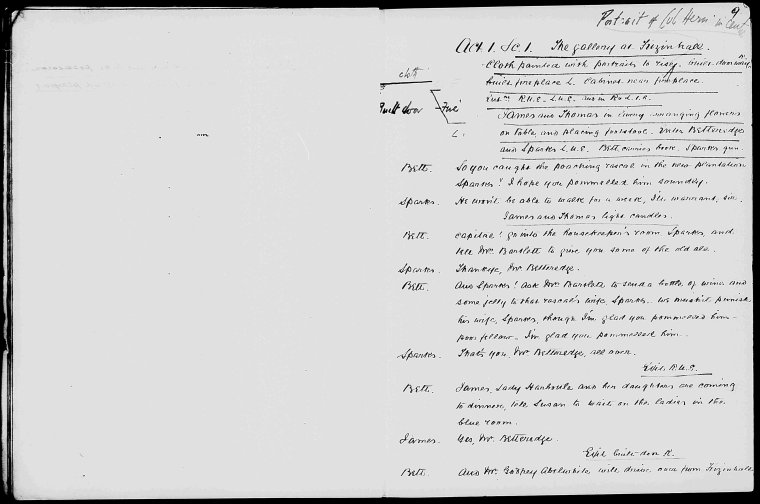 Portrait of Col Hern in
9
Act 1. Sc. 1. The gallery at Frizinhall.
Cloth painted with portraits to rise, built doorway
built fireplace L. Cabinet near fireplace
cloth
Built door
Fire
L.
Ent. R.U.E. L.U.E. and in R & L.I.E.
James and Thomas in livery arranging flowers
on table and placing footstool. Enter Betteredge
and Sparks L.U.E. Bett. carries book, Sparks gun.
Bett. So you caught the poaching rascal in the new plantation
Sparks? I hope you pommelled him soundly.
Sparks. He won't be able to walk for a week, I'll warrant, sir.
James and Thomas light candles.
Bett. Capital! go into the housekeeper's room Sparks, and
tell Mrs. Bartlett to give you some of the old ale.
Sparks. Thankye, Mr. Betteredge.
Bett. And Sparks! Ask Mrs. Bartlett to send a bottle of wine and
some jelly to that rascal's wife, Sparks. We mustn't punish
his wife, Sparks, though I'm glad you pommelled him -
poor fellow - I'm glad you pommelled him.
Sparks. That's you, Mr. Betteredge, all over.
Exit R.U.E.
Bett. James, Lady and her daughters are coming
to dinner, tell Susan to wait on the ladies in the
blue room.
James. Yes, Mr. Betteredge.
Exit built door R.
Bett. And Mr. Godfrey Ablewhite will drive over from Frizinhall